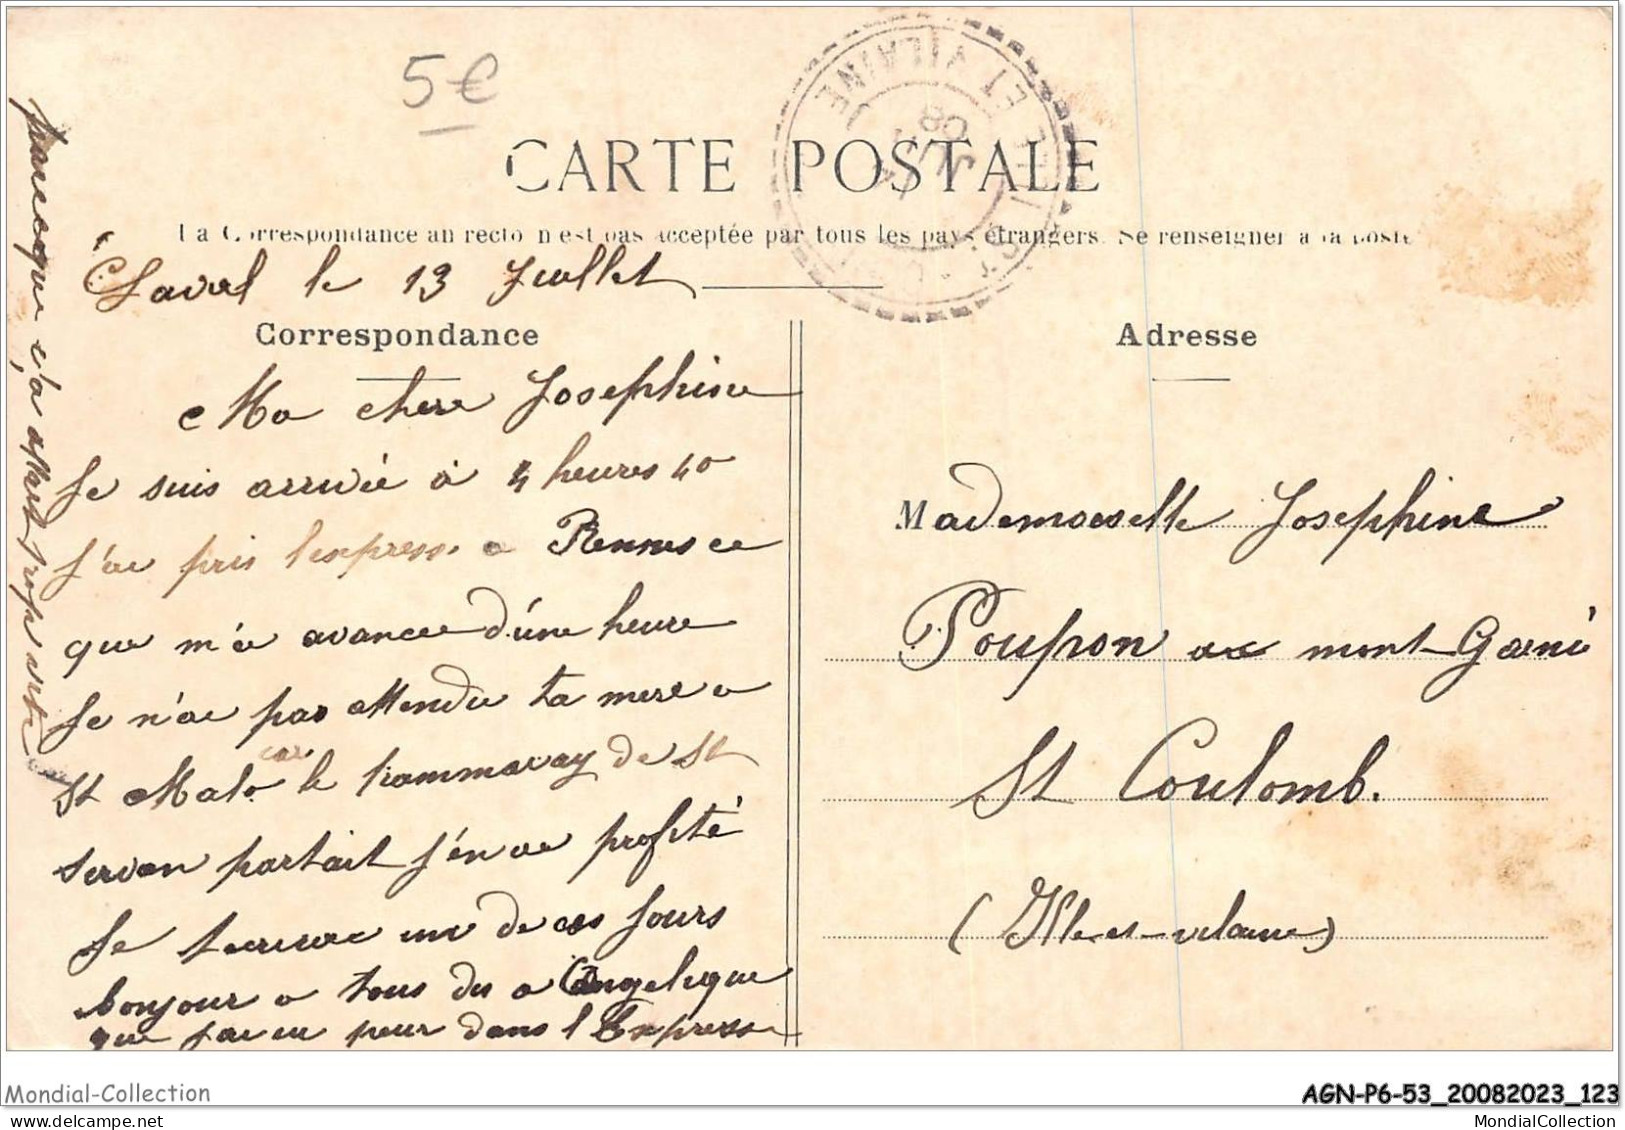 5€
CARTE POSTALE
ILLE ET VILAINE
08
La Correspondance au recto n'est pas acceptée par tous les pays étrangers. Se renseigner à la poste
Laval le 13 Juillet
Correspondance
Adresse
Ma chere Josephine
Je suis arrivée à 4 heures 40
j'ai pris l'express a Rennes ce
que m'a avancée d'une heure
Je n'ai pas attendu ta mere a
car
St Malo le trammway de St
servan partait j'en ai profité
Je un de ces jours
bonjour a tous dis a Angelique
que j'ai eu peur dans l'Express
parceque ça allait trop vite
Mademoiselle Josephine
Poupon au mont Garni
St Coulomb.
(Ille-et-vilaine)
Mondial-Collection
AGN-P6-53_20082023_123
MondialCollection